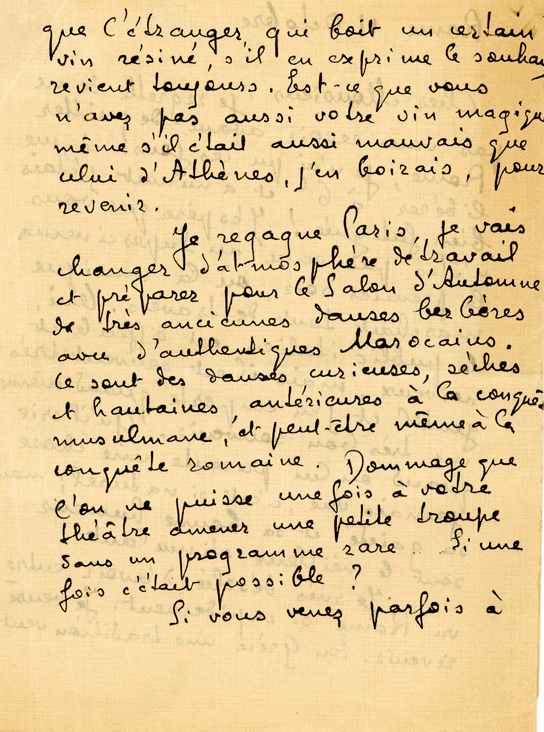 que l'étranger qui boit un certain
vin résiné, s'il en exprime le souhai
revient toujours. Est-ce que vous
n'avez pas aussi votre vin magiqu
même s'il était aussi mauvais que
celui d'Athènes, j'en boirais, pour
revenir.
Je regagne Paris, je vais
changer d'atmosphère de travail
et préparer pour le Salon d'Automne
de très anciennes danses berbères
avec d'authentiques Marocains.
Ce sont des danses curieuses, sèches
et hautaines antérieures à la conquê
musulmane, et peut-être même à la
conquête romaine. Dommage que
l'on ne puisse une fois à votre
théâtre amener une petite troupe
dans un programme rare .. Si une
fois c'était possible ?
Si vous venez parfois à